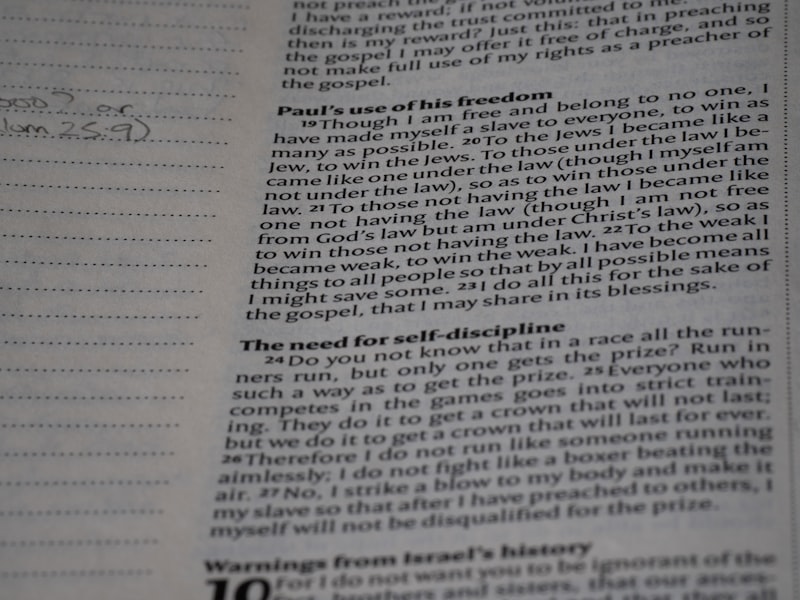 ooo? or
lam 25:9)
not preach the
I have a reward; if not
discharging the trust committed to me.
then is my reward? Just this: that in preaching
the gospel I may offer it free of charge, and so
not make full use of my rights as a preacher of
the gospel.
Paul's use of his freedom
19 Though I am free and belong to no one, I
have made myself a slave to everyone, to win as
many as possible. 20 To the Jews I became like a
Jew, to win the Jews. To those under the law I be-
came like one under the law (though I myself am
not under the law), so as to win those under the
law. 21 To those not having the law I became like
one not having the law (though I am not free
from God's law but am under Christ's law), so as
to win those not having the law. 22 To the weak I
became weak, to win the weak. I have become all
things to all people so that by all possible means
I might save some. 23 I do all this for the sake of
the gospel, that I may share in its blessings.
The need for self-discipline
24 Do you not know that in a race all the run-
ners run, but only one gets the prize? Run in
such a way as to get the prize. 25 Everyone who
competes in the games goes into strict train-
ing. They do it to get a crown that will not last;
but we do it to get a crown that will last for ever.
26 Therefore I do not run like someone running
aimlessly; I do not fight like a boxer beating the
air. 27 No, I strike a blow to my body and make it
my slave so that after I have preached to others, I
myself will not be disqualified for the prize.
Warnings from Israel's history
10 For I do not want you to be ignorant of the
brothers and sisters, that our ances-
that they all